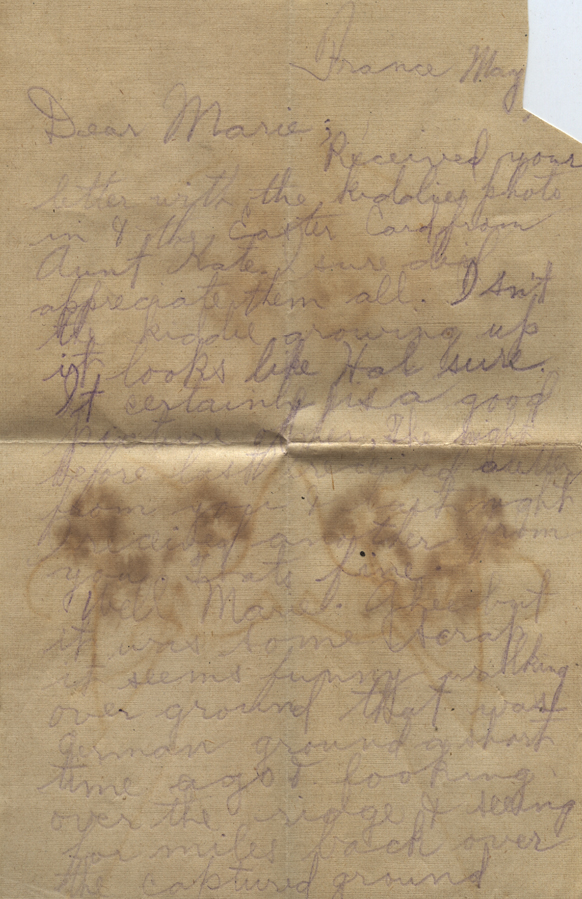 France May
Dear Marie;
Received your
letter with the kiddies photo
in & the Easter Card from
Aunt Kate. I sure did
appreciate them all. Isn't
the kiddie growing up
it looks like Hal sure.
It certainly is a good
picture of her. The night
before last received a letter
from you & last night
received another from
you. Thats fine.
Well Marie. but
it was some scrap,
it seems funny walking
over ground that was
German ground a short
time ago & looking
over the ridge & seeing
for miles back over
the captured ground